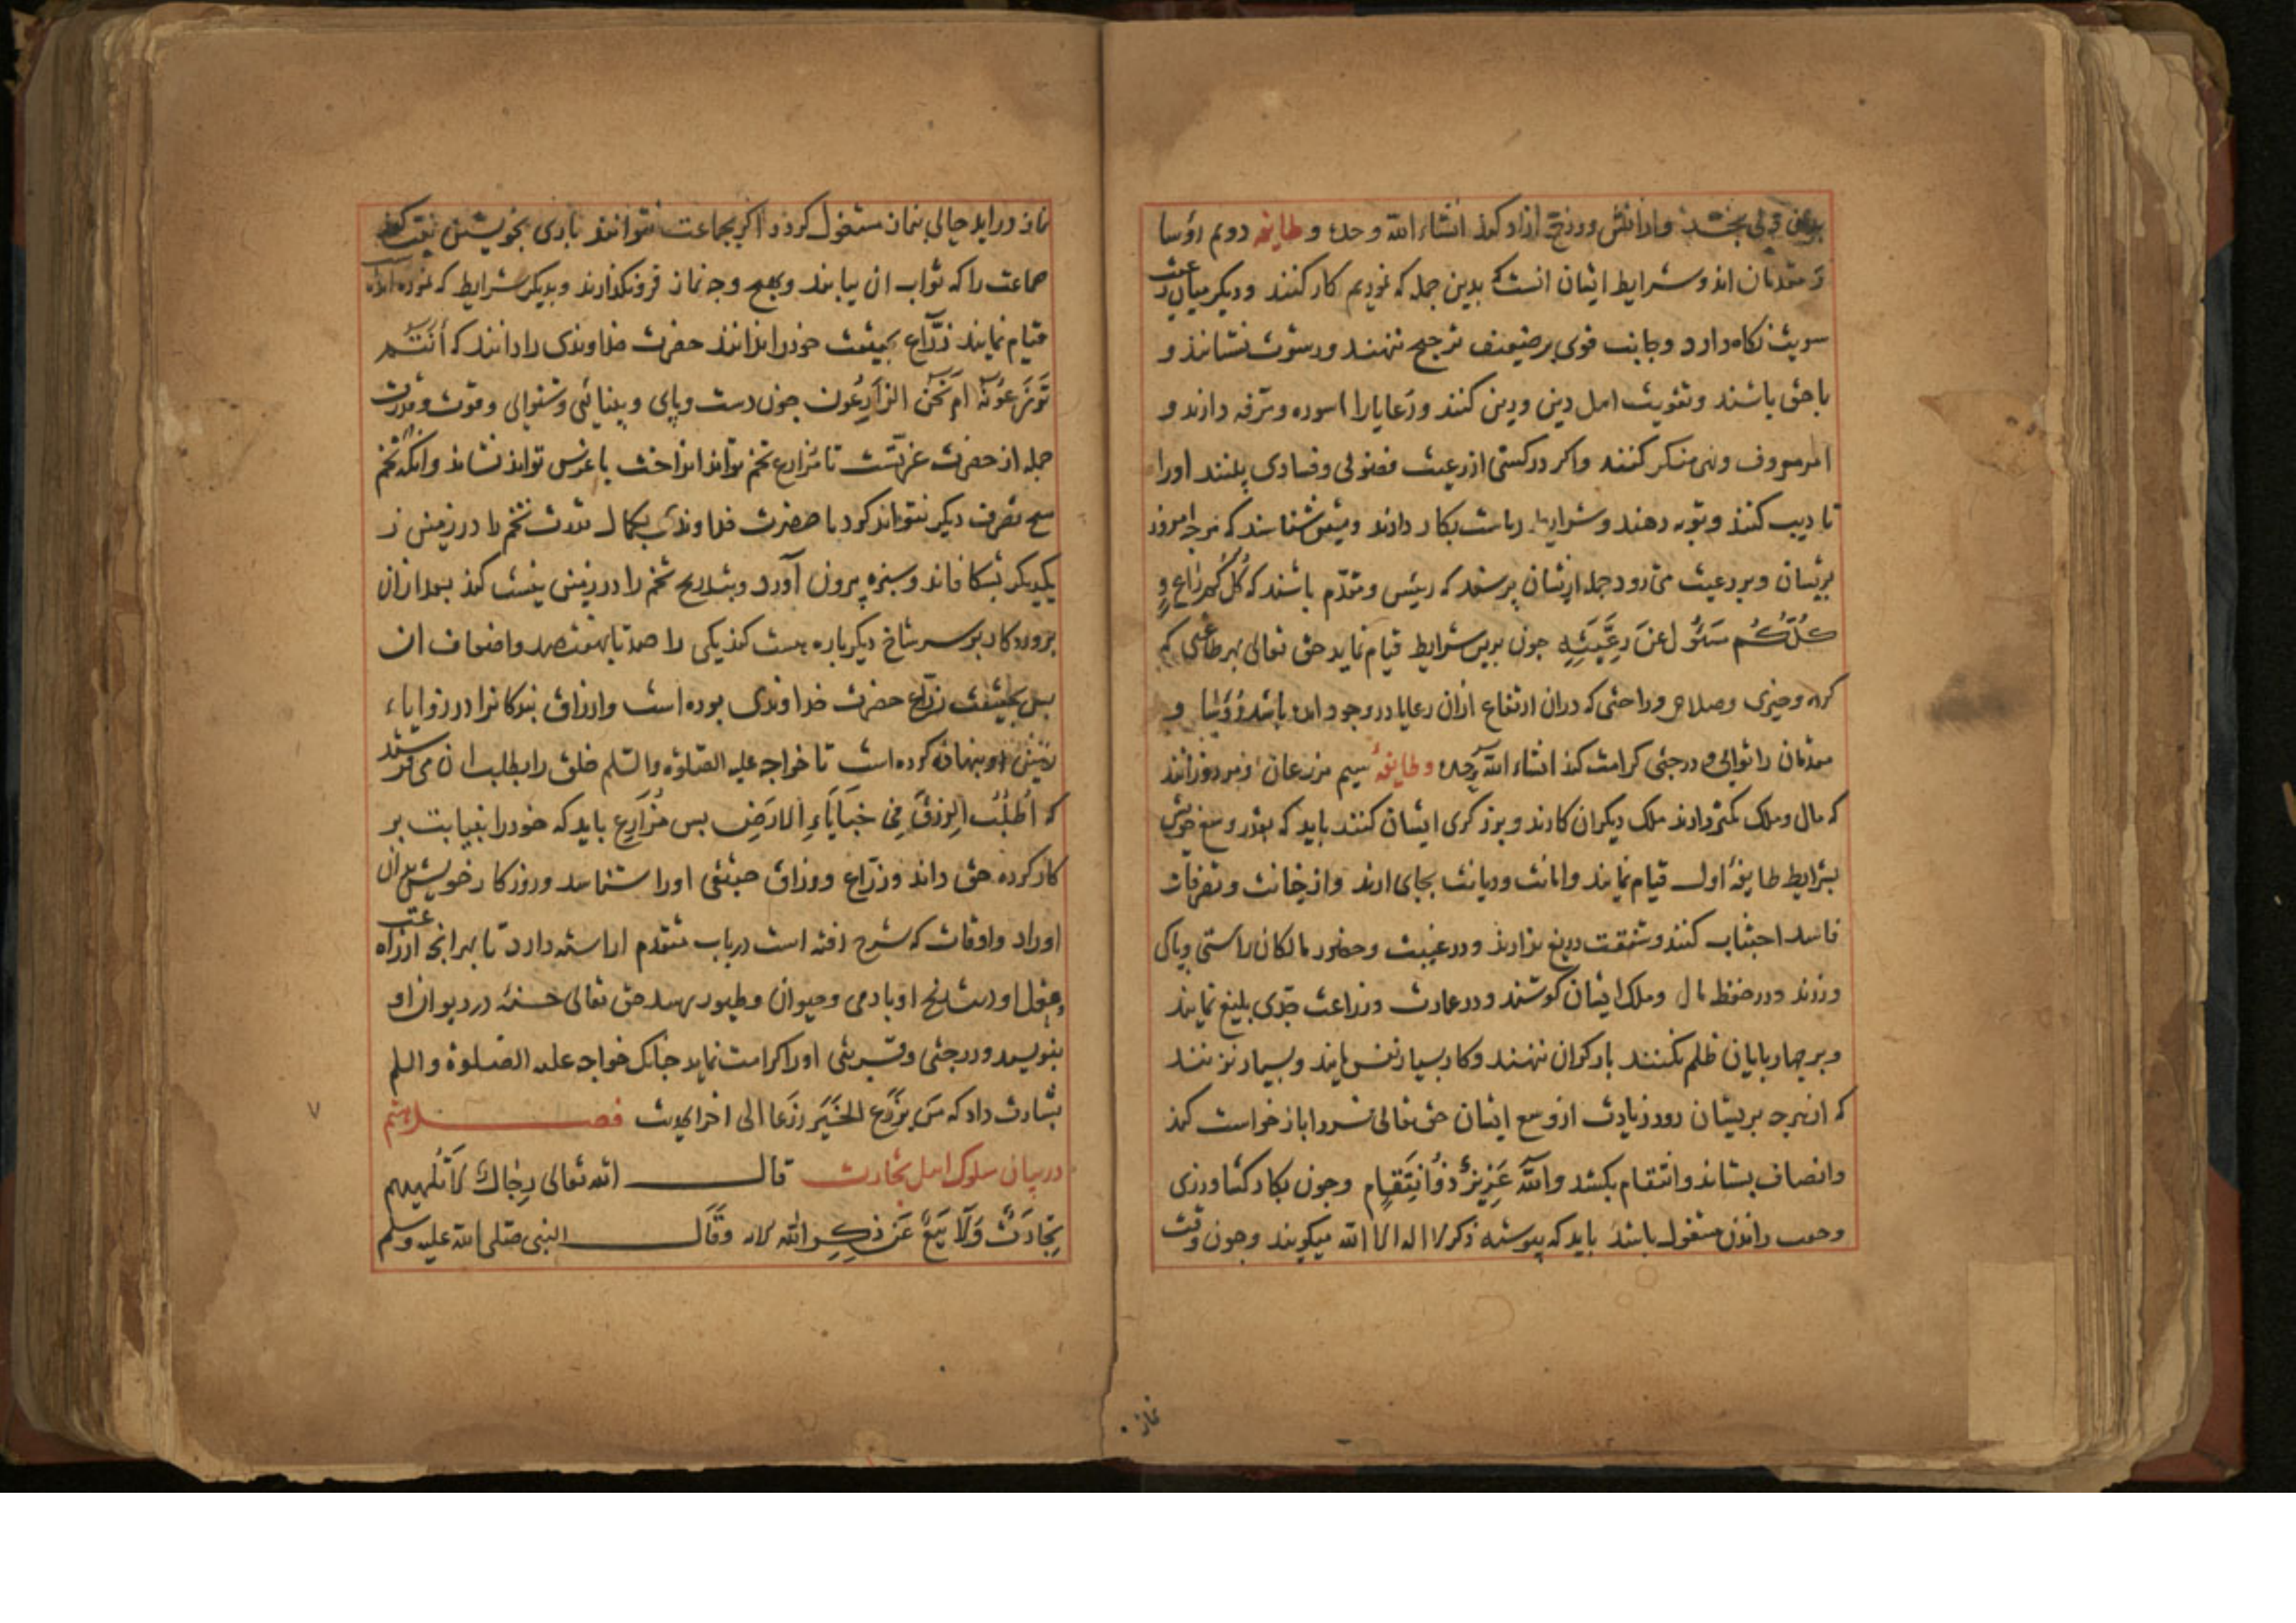 بدو بخشد و از آتش دوزخ آزاد کند انشاء الله وحده و طایفه دویم رؤسا
و مقدمان اند و شرایط ایشان انست که بدین جمله که نمودیم کار کنند و دیکر میان رعیت
سویت نکاه دارد و جانب قوی بر ضعیف ترجیح ننهند و رشوت نستانند و
با حق باشند و تقویت اهل دین و دین کنند و رعایا را اسوده و مرفه دارند و
امر معروف و نهی منکر کنند و اکر در کستی از رعیت فضولی و فسادی بینند او را
تادیب کنند و توبه دهند و شرایط ریاست بکار دارند و متیقن شناسند که هرچه امروز
بریشان و بر رعیت می رود جمله ازیشان پرسند که رییس و مقدم باشند که کُلُّکُم راعٍ و
کُلُّکُم مَسئُولٌ عَن رَعِیَّتِهِ جون برین شرایط قیام نماید حق تعالی بهر طاعتی که
کرده و خیری و صلاحی و راحتی که دران ارتفاع ازان رعایا در وجود امده باشد رؤسا و
مقدمان را ثوابی و درجتی کرامت کند انشاء الله وحده و طایفهٔ سیم مزارعان و مزدورانند
که مال و ملک کمتر دارند ملک دیکران کارند و برزکری ایشان کنند باید که بقدر وسع خویش
بشرایط طایفهٔ اول قیام نمایند و امانت و دیانت بجای ارند و از خیانت و تصرفات
فاسد اجتناب کنند و شفقت دریغ ندارند و در غیبت و حضور مالکان راستی و پاکی
ورزند و در حفظ مال و ملک ایشان کوشند و در عمارت و زراعت جدی بلیغ نمایند
و بر چهارپایان ظلم نکنند بار کران ننهند و کار بسیار نفرمایند و بسیار نزنند
که از هرچه بریشان رود زیادت از وسع ایشان حق تعالی فردا بازخواست کند
و انصاف بستاند و انتقام بکشد وَاللّٰهُ عَزِیزٌ ذُوانْتِقَامٍ و جون بکار کشاورزی
و جفت راندن مشغول باشند باید که پیوسته ذکر لا اله الا الله میکویند و جون وقت
نماز
نماز دراید حالی بنماز مشغول کردد اکر بجماعت نتوانند باری بخویشتن نیت کنند
جماعت را که ثواب ان بیابند و بهیچ وجه نماز فرونکذارند و بدیکر شرایط که نموده امده است
قیام نمایند زرّاع بحقیقت خود را ندانند حضرت خداوندی را دانند که أَأَنْتُمْ
تَزْرَعُونَهُ اَمْ نَحْنُ الزَّارِعُونَ جون دست و پای و بینائی و شنوایی و قوت و قدرت
جمله از حضرت عزتست تا مزارع تخم تواند انداخت یا غرس تواند نشاند و انکه تخم
هیچ تصرف دیکر نتواند کرد تا حضرت خداوندی بکمال قدرت تخم را در زمین ز
یکدیکر بشکافاند و سبزه بیرون آورد و بتدریج تخم را در زمین نیست کند بعد ازان
پروردکار بر سر شاخ دیکرباره هست کند یکی را صد تا بهفتصد و اضعاف ان
بس بحقیقت زراع حضرت خداوندی بوده است و ارزاق بندکانرا در زوایاء
زمین او پنهان کرده است تا خواجه علیه الصلوة والسلم خلق را بطلب ان می فرستد
که اُطْلُبُوا الرِّزْقَ فِی خَبَایَاءِ الاَرضِ بس مُزارِع باید که خود را بنیابت بر
کار کرده حق داند و زرّاع و رزاق حقیقی او را شناسد و روزکار خویش بدان
اوراد و اوقات که شرح رفته است در باب متقدم اراسته دارد تا بهر انچ از زراعت
و غله او و درخت او بادمی و حیوان و طیور رسد حق تعالی حسنهٔ در دیوان او
بنویسد و درجتی و قربتی او را کرامت نماید جنانک خواجه علیه الصلوة والسلم
بشارت داد که مَن یَزْرَعُ الخَیرَ زَرعًا الی اخر الحدیث فصل هشتم
در بیان سلوک اهل تجارت قال الله تعالی رِجَالٌ لَا تُلْهِیهِمْ
تِجَارَةٌ وَلَا بَیْعٌ عَنْ ذِکْرِ اللّٰهِ الایه وقال النبی صلی الله علیه وسلم